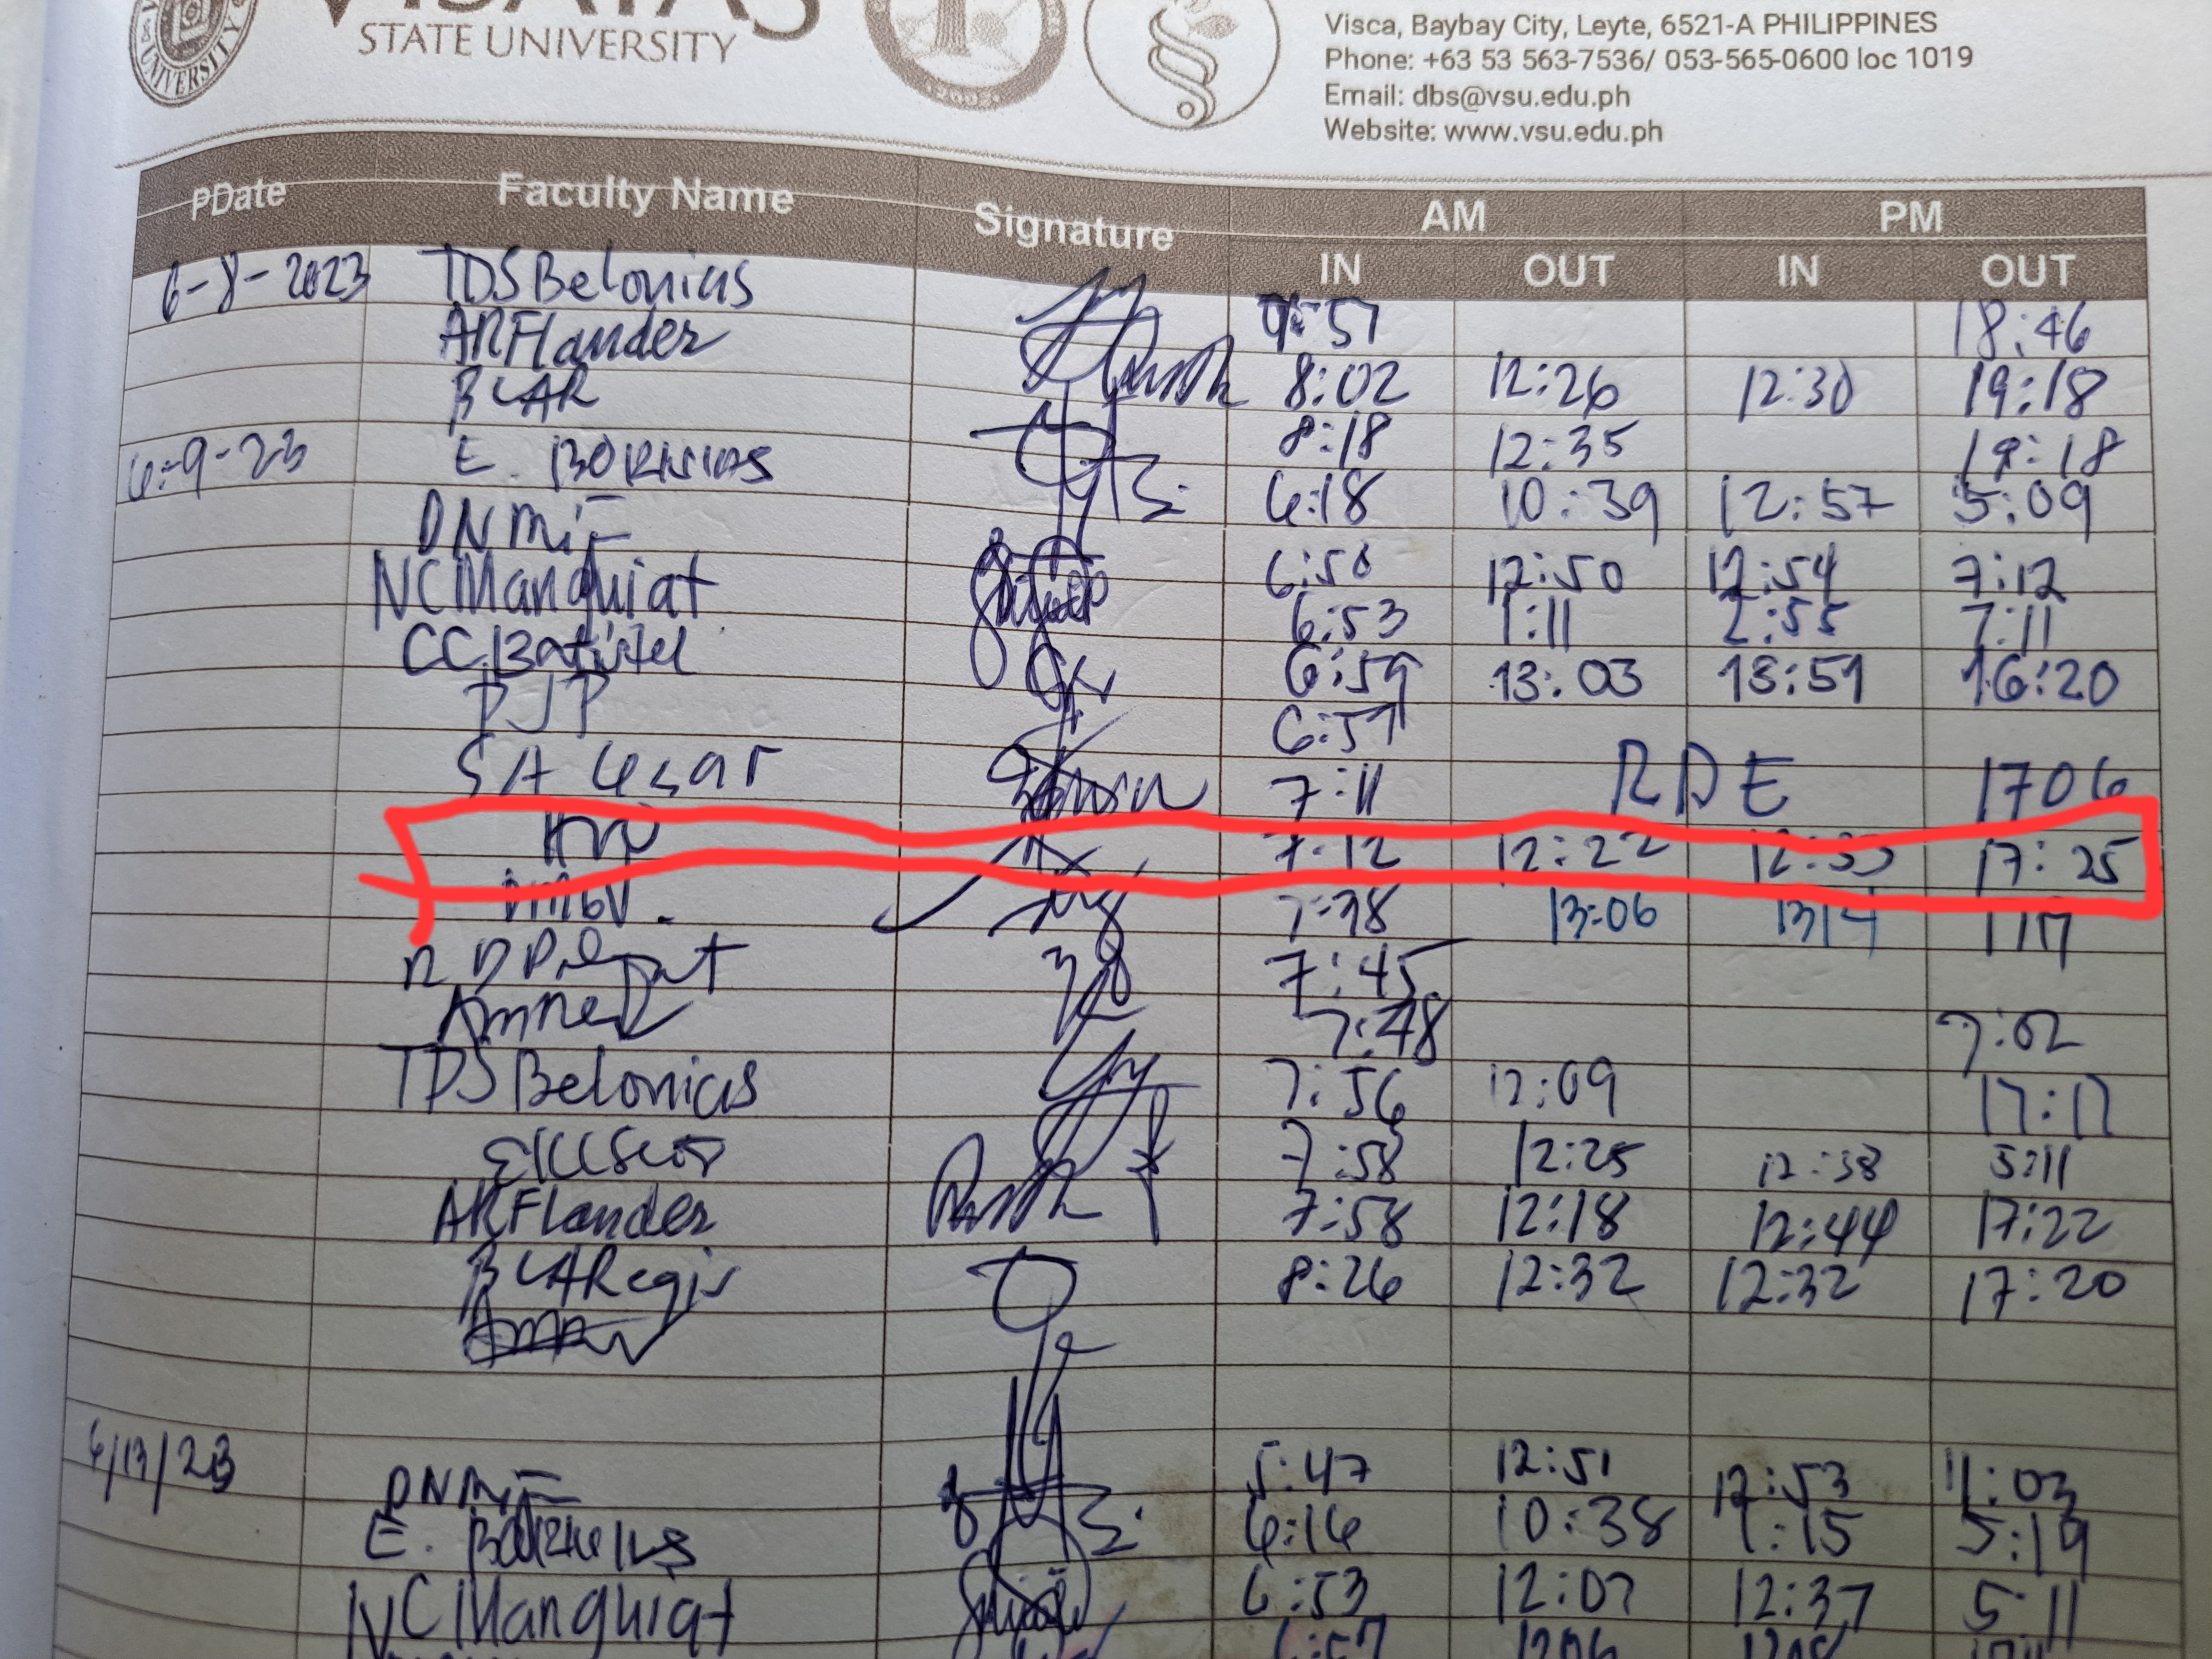 STATE UNIVERSITY
UNIVERSITY
Visca, Baybay City, Leyte, 6521-A PHILIPPINES
Phone: +63 53 563-7536/ 053-565-0600 loc 1019
Email: dbs@vsu.edu.ph
Website: www.vsu.edu.ph
PDate Faculty Name Signature AM PM
IN OUT IN OUT
6-8-2023 TDSBelonias 18:46
ARFlander 8:02 12:26 12:30 19:18
BCAR 8:18 12:35 19:18
6-9-23 E. 6:18 10:39 12:57 5:09
DN 6:50 12:50 12:54 7:12
NCManquiat 6:53 1:11 2:55 7:11
CC 6:59 13:03 13:51 16:20
PJP 6:57
SA Cesar 7:11 RDE 1706
7:12 12:22 17:25
7:38 13:06 1717
7:45
7:48 7:02
TDSBelonias 7:56 12:09 17:17
7:58 12:25 12:38 5:11
ARFlander 7:58 12:18 12:44 17:22
BCARegis 8:26 12:32 12:32 17:20
6/13/23 DN 5:47 12:51 12:53
E. 6:16 10:38 1:15 5:19
NCManquiat 6:53 12:07 12:37 5:11
6:57 1206 1208